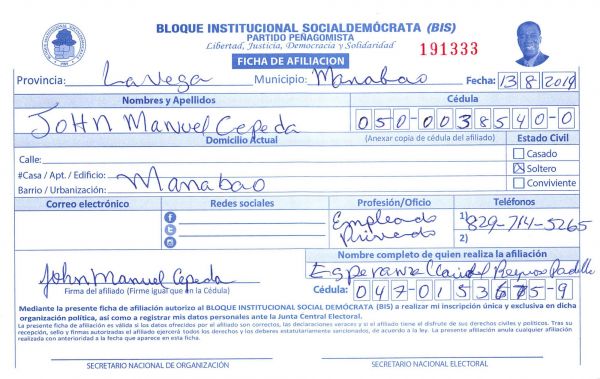 BLOQUE INSTITUCIONAL SOCIALDEMÓCRATA (BIS)
PARTIDO PEÑAGOMISTA
Libertad, Justicia, Democracia y Solidaridad
FICHA DE AFILIACION
191333
Provincia: La Vega Municipio: Manabao Fecha: 13 8 2019
Nombres y Apellidos Cédula
John Manuel Cepeda 050-0038540-0
Domicilio Actual (Anexar copia de cédula del afiliado) Estado Civil
Calle: Casado
#Casa / Apt. / Edificio: X Soltero
Barrio / Urbanización: Manabao Conviviente
Correo electrónico Redes sociales Profesión/Oficio Teléfonos
Empleado Privado 1) 829-714-5265
2)
Nombre completo de quien realiza la afiliación
John Manuel Cepeda Esperanza Reynoso Padilla
Firma del afiliado (Firme igual que en la Cédula) Cédula: 047-0153675-9
Mediante la presente ficha de afiliación autorizo al BLOQUE INSTITUCIONAL SOCIAL DEMÓCRATA (BIS) a realizar mi inscripción única y exclusiva en dicha
organización política, así como a registrar mis datos personales ante la Junta Central Electoral.
La presente ficha de afiliación es válida si los datos ofrecidos por el afiliado son correctos, las declaraciones veraces y si el afiliado tiene el disfrute de sus derechos civiles y políticos. Tras su
recepción, sello y firmas autorizadas el afiliado ejercerá todos los derechos y los deberes estatutariamente sancionados, de acuerdo a la ley. La presente afiliación anula cualquier afiliación
realizada con anterioridad a la fecha que aparece en esta ficha.
SECRETARIO NACIONAL DE ORGANIZACIÓN SECRETARIO NACIONAL ELECTORAL